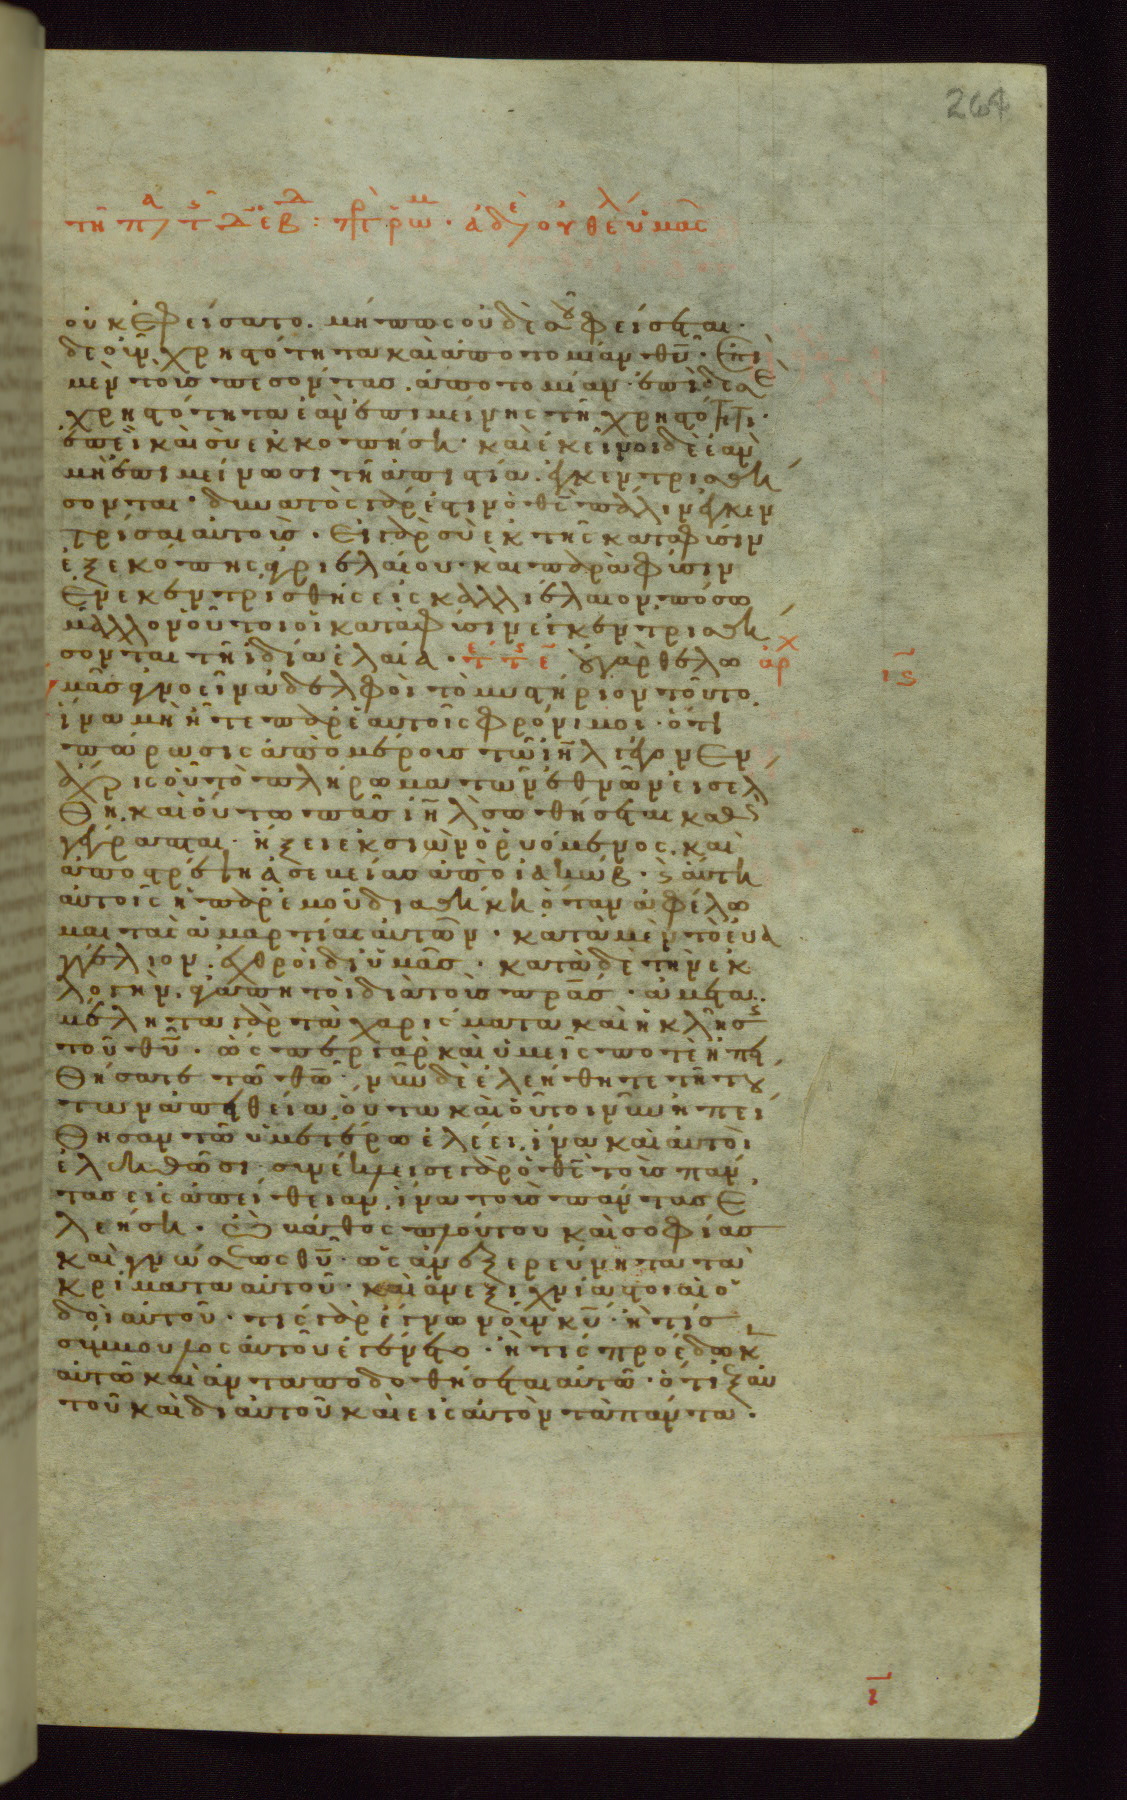 264
τῆ πα τ ϛ ἑβδ : πρ ρωμ · ἀδε οὐ θελ ὑμᾶς
οὐκ ἐφείσατο · μήπως οὐδὲ σοῦ φείσηται ·
ἴδε οὖν χρηστότητα καὶ ἀποτομίαν θυ · ἐπὶ
μὲν τοὺς πεσόντας ἀποτομίαν · ἐπὶ δὲ σὲ
χρηστότητα ἐὰν ἐπιμείνης τῆ χρηστότητι ·
ἐπεὶ καὶ σὺ ἐκκοπήση · καὶ ἐκεῖνοι δὲ ἐὰν
μὴ ἐπιμείνωσι τῆ ἀπιστία ἐγκεντρισθή
σονται · δυνατὸς γάρ ἐστιν ὁ θς πάλιν ἐγκεν
τρίσαι αὐτούς · εἰ γὰρ σὺ ἐκ τῆς κατὰ φύσιν
ἐξεκόπης ἀγριελαίου · καὶ παρὰ φύσιν
ἐνεκεντρίσθης εἰς καλλιέλαιον πόσω
μᾶλλον οὗτοι οἱ κατὰ φύσιν ἐγκεντρισθή
σονται τῆ ἰδία ἐλαία · τε τ ϛ ε οὐ γὰρ θέλω αρχ ιϛ
ὑμᾶς ἀγνοεῖν ἀδελφοὶ τὸ μυστήριον τοῦτο
ἵνα μὴ ἦτε παρ᾽ ἑαυτοῖς φρόνιμοι · ὅτι
πώρωσις ἀπὸ μέρους τῶ ιηλ γέγονεν
ἄχρις οὗ τὸ πλήρωμα τῶν ἐθνῶν εἰσέλ
θη καὶ οὕτω πᾶς ιηλ σωθήσεται καθὼς
γέγραπται · ἥξει ἐκ σιὼν ὁ ῥυόμενος καὶ
ἀποστρέψει ἀσεβείας ἀπὸ ἰακώβ · καὶ αὕτη
αὐτοῖς ἡ παρ᾽ ἐμοῦ διαθήκη ὅταν ἀφέλω
μαι τὰς ἁμαρτίας αὐτῶν · κατὰ μὲν τὸ εὐα
γγέλιον ἐχθροὶ δι᾽ ὑμᾶς · κατὰ δὲ τὴν ἐκ
λογὴν ἀγαπητοὶ διὰ τοὺς πρας · ἀμετα
μέλητα γὰρ τὰ χαρίσματα καὶ ἡ κλῆσις
τοῦ θυ · ὥσπερ γὰρ καὶ ὑμεῖς ποτὲ ἠπει
θήσατε τῶ θω νῦν δὲ ἐλεήθητε τῆ του
των ἀπειθεία οὕτω καὶ οὗτοι νῦν ἠπεί
θησαν τῶ ὑμετέρω ἐλέει ἵνα καὶ αὐτοὶ
ἐλεηθῶσι συνέκλεισε γὰρ ὁ θς τοὺς πάν
τας εἰς ἀπείθειαν ἵνα τοὺς πάντας ἐ
λεήση · ὦ βάθος πλούτου καὶ σοφίας
καὶ γνώσεως θυ · ὡς ἀνεξερεύνητα τὰ
κρίματα αὐτοῦ · καὶ ἀνεξιχνίαστοι αἱ ὁ
δοὶ αὐτοῦ · τίς γὰρ ἔγνω νοῦν κυ · ἢ τίς
σύμβουλος αὐτοῦ ἐγένετο · ἢ τίς προέδωκεν
αὐτῶ καὶ ἀνταποδοθήσεται αὐτῶ · ὅτι ἐξ αὐ
τοῦ καὶ δι᾽ αὐτοῦ καὶ εἰς αὐτὸν τὰ πάντα ·
ι